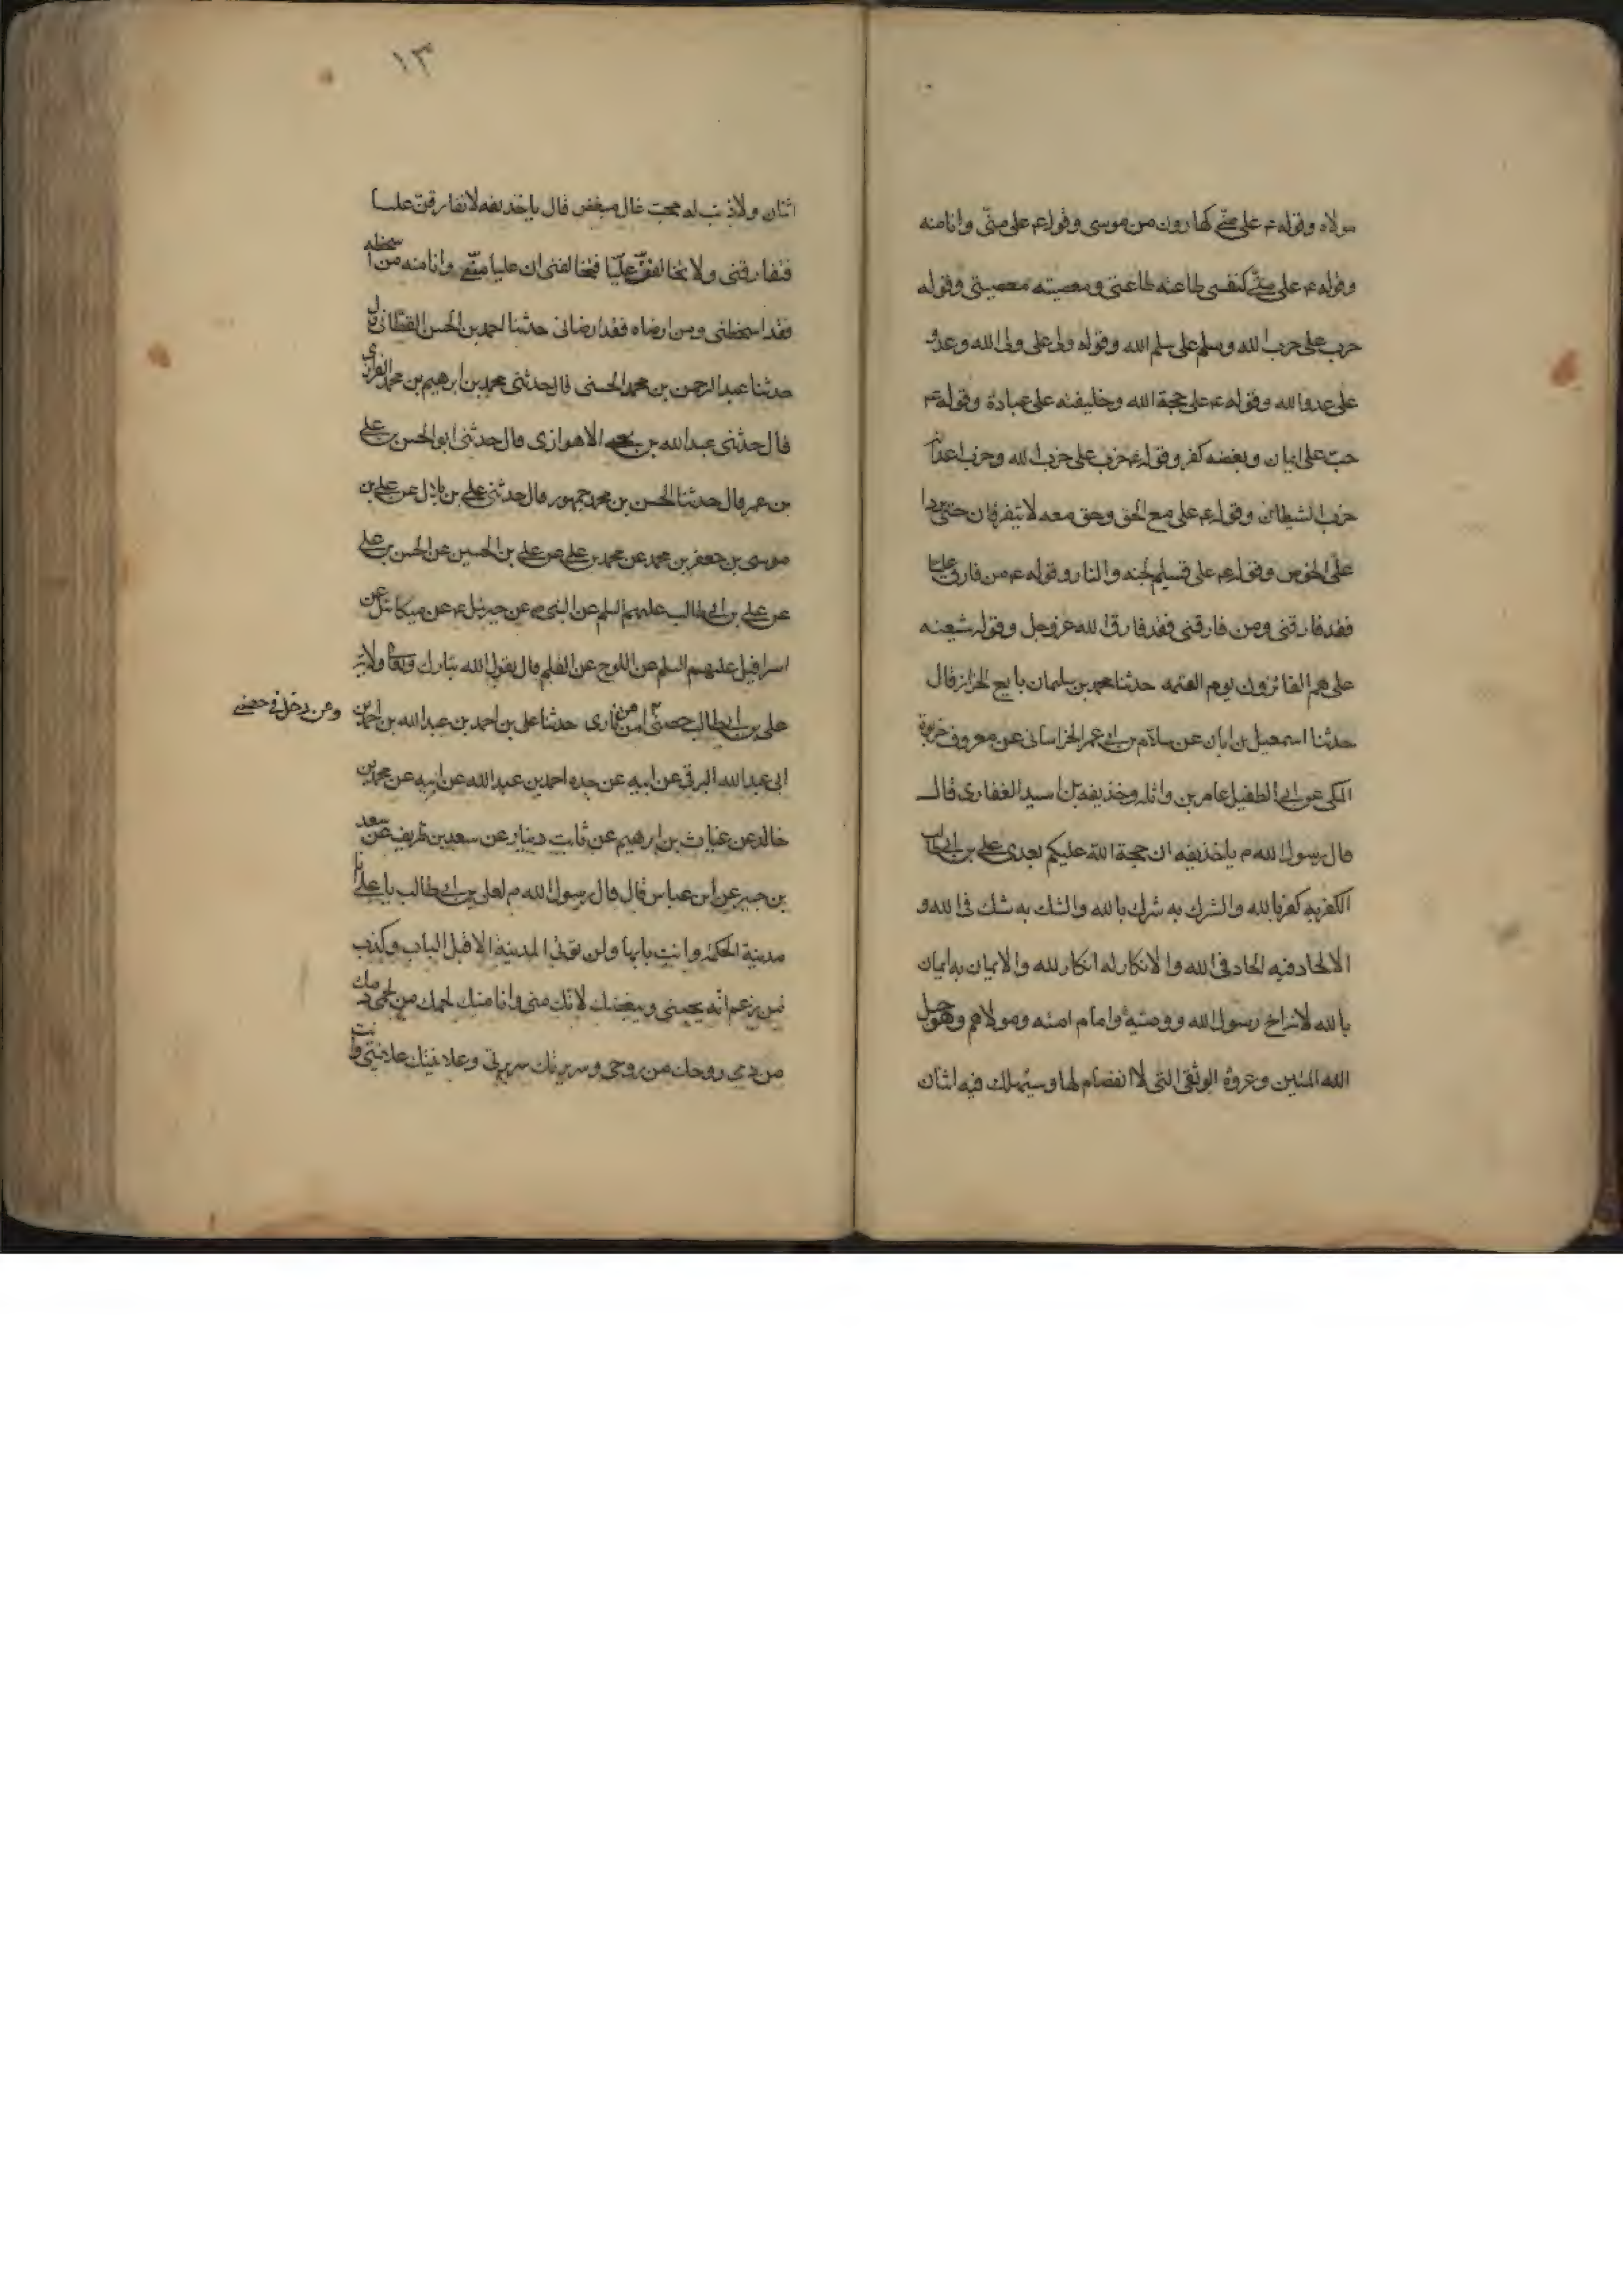 مولاه وقوله ع على منّى كهارون من موسى وقوله ع على منّى وانا منه
وقوله ع على منّى كنفسى طاعته طاعتى ومعصيته معصيتى وقوله
حرب على حرب الله وسلم على سلم الله وقوله ولى على ولى الله وعدو
على عدو الله وقوله ع على حجة الله وخليفته على عباده وقوله ع
حبّ على ايمان وبغضه كفر وقوله ع حزب على حزب الله وحزب اعدائه
حزب الشيطان وقوله ع على مع الحق وحق معه لا يتفرقان حتى يردا
على الحوض وقوله ع على قسيم الجنه والنار وقوله ع من فارق عليا
فقد فارقنى ومن فارقنى فقد فارق الله عز وجل وقوله شيعته
على هم الفائزون يوم القيمه حدثنا محمد بن سليمان بايع الخزاز قال
حدثنا اسمعيل بن ابان عن سلام بن ابى عمر الخراسانى عن معروف خربوذ
المكى عن ابى الطفيل عامر بن واثله وحذيفه بن اسيد الغفارى قال
قال رسول الله م ياخذيفه ان حجة الله عليكم بعدى على بن ابى طالب
الكفر به كفر بالله والشرك به شرك بالله والشك به شك فى الله و
الالحاد فيه الحاد فى الله والانكار له انكار لله والايمان به ايمان
بالله لانه اخ رسول الله ووصيّه وامام امته ومولاهم وهو حبل
الله المتين وعروة الوثقى التى لا انفصام لها وسيهلك فيه اثنان
١٣
اثنان ولا ذنب له محبّ غال مبغض قال ياخذيفه لا تفارقنّ عليا
فتفارقنى ولا تخالفنّ عليّا فتخالفنى ان عليا منّى وانا منه من اسخطه
فقد اسخطنى ومن ارضاه فقد ارضانى حدثنا احمد بن الحسن القطّان قال
حدثنا عبد الرحمن بن محمد الحسنى قال حدثنى محمد بن ابرهيم بن محمد الفزارى
قال حدثنى عبد الله بن يحيى الاهوازى قال حدثنى ابو الحسن بن على
بن عمر قال حدثنا الحسن بن محمد جمهور قال حدثنى على بن بلال عن على بن
موسى بن جعفر بن محمد عن محمد بن على عن على بن الحسين عن الحسن بن على
عن على بن ابى طالب عليهم السلم عن النبى م عن جبرئيل ع عن ميكائيل عن
اسرافيل عليهم السلم عن اللوح عن القلم قال يقول الله تبارك وتعالى ولاية
على بن ابى طالب حصنى امن من نارى حدثنا على بن احمد بن عبد الله بن احمد بن
ومن دخل فى حصنى
ابى عبد الله البرقى عن ابيه عن جده احمد بن عبد الله عن ابيه عن محمد بن
خالد عن غياث بن ابرهيم عن ثابت دينار عن سعد بن ظريف عن سعد
بن جبير عن ابن عباس قال قال رسول الله م لعلى بن ابى طالب يا على انا
مدينة الحكمة وانت بابها ولن تؤتى المدينة الا قبل الباب وكذب
من زعم انّه يحبنى ويبغضك لانّك منى وانا منك لحمك من لحمى دمك
من دمى روحك من روحى وسريرتك سريرتى وعلانيتك علانيتى وانت